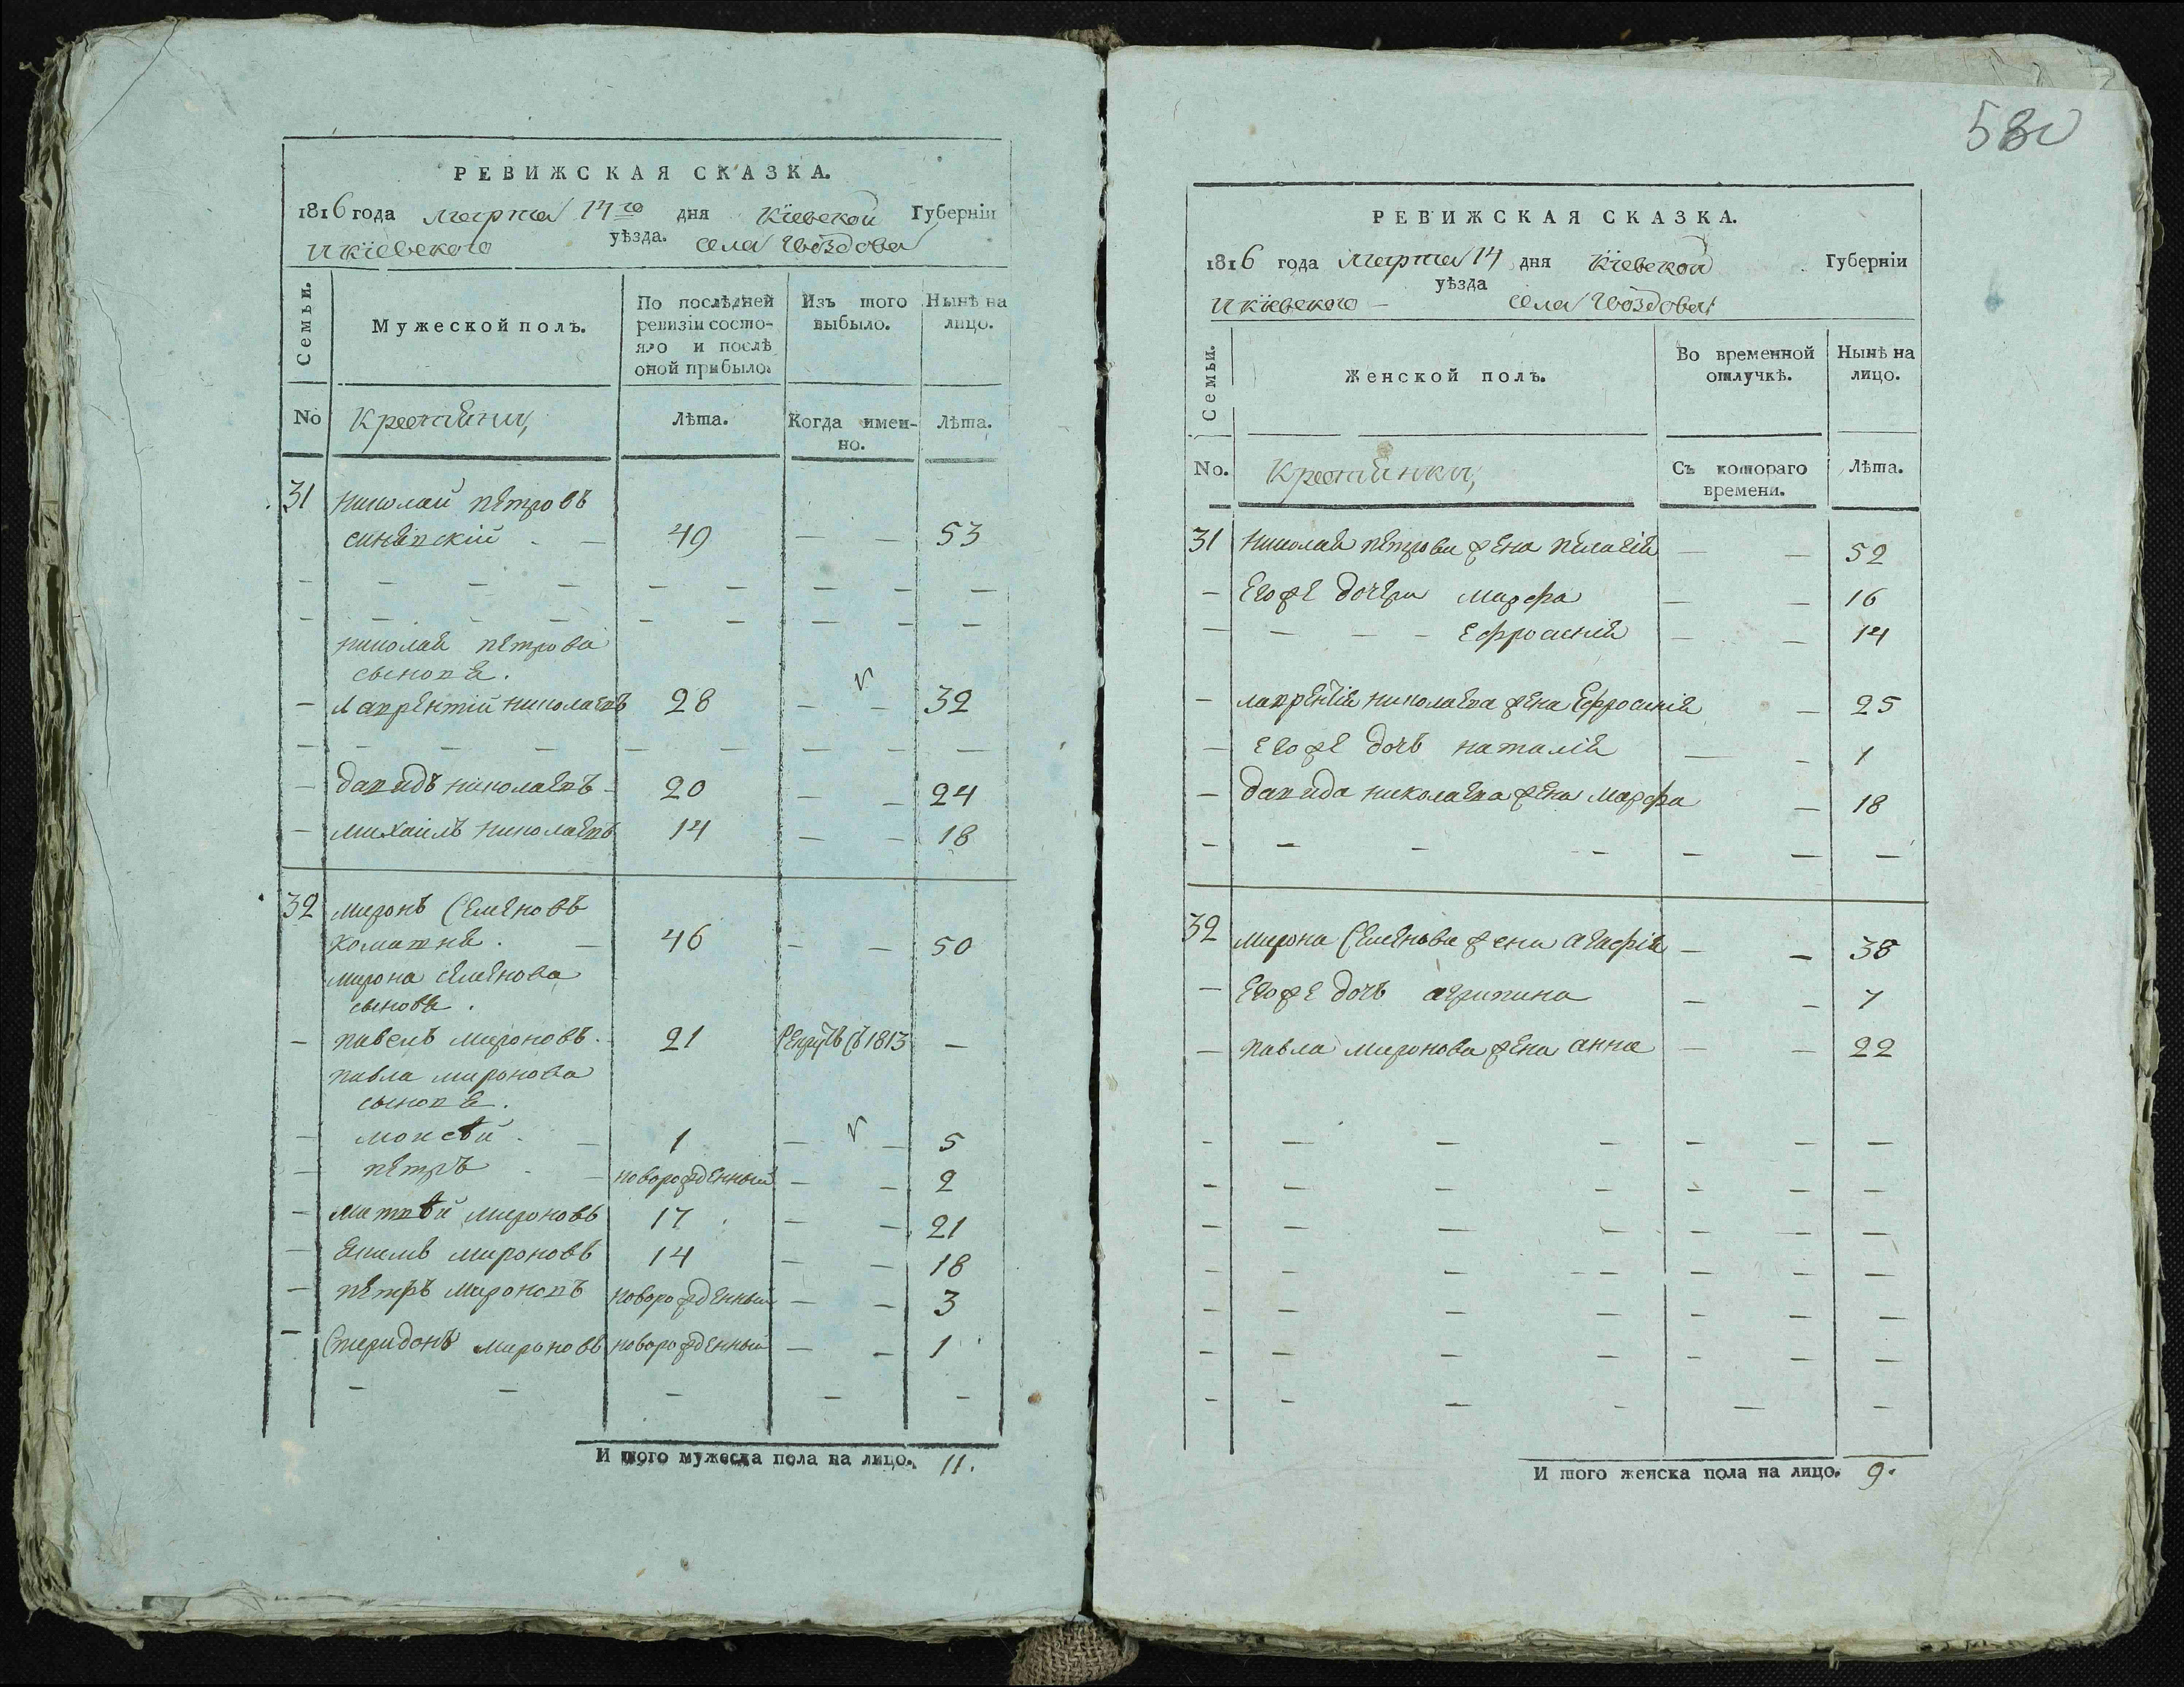 РЕВИЖСКАЯ СКАЗКА.
1816 года марта 14го дня Кіевской Губерніи
и кіевского уѣзда. села Гвоздова
Семьи.
Мужеской полъ.
По послѣдней ревизіи состояло и послѣ оной прибыло.
Изъ того выбыло.
Нынѣ на лицо.
No
Крестяни,
Лѣта.
Когда имен-но.
Лѣта.
31 николай петровъ
синявскій 49 — — 53
николая петрова
сыновя.
— Лаврентій николаевъ 28 — — 32
— давидъ николаевъ 20 — — 24
— михаилъ николаевъ 14 — — 18
32 миронъ Семеновъ
46 — — 50
мирона семенова
сыновя.
— павелъ мироновъ. 21 рекрутъ съ 1813 —
павла миронова
сыновя.
— моисѣй 1 — — 5
— петръ новорожденный — — 2
— матвѣй мироновъ 17 — — 21
— мироновъ 14 — — 18
— петръ мироновъ новорожденный — — 3
— Спиридонъ мироновъ новорожденный — — 1
И того мужеска пола на лицо. 11.
580
РЕВИЖСКАЯ СКАЗКА.
1816 года марта 14 дня Кіевской Губерніи
и кіевского — уѣзда села Гвоздова
Семьи.
Женской полъ.
Во временной отлучкѣ.
Нынѣ на лицо.
No.
Крестянки,
Съ котораго времени.
Лѣта.
31 николая петрова жена пелагія — — 52
— Его же дочери марфа — — 16
— — — — Ефросинія — — 14
— лаврентія николаева жена Ефросинія — 25
— Его же дочь наталія — — 1
— давида николаева жена марфа — 18
32 мирона Семенова жена агафія — — 38
— Его же дочь агрипина — — 7
— павла миронова жена анна — — 22
И того женска пола на лицо. 9.